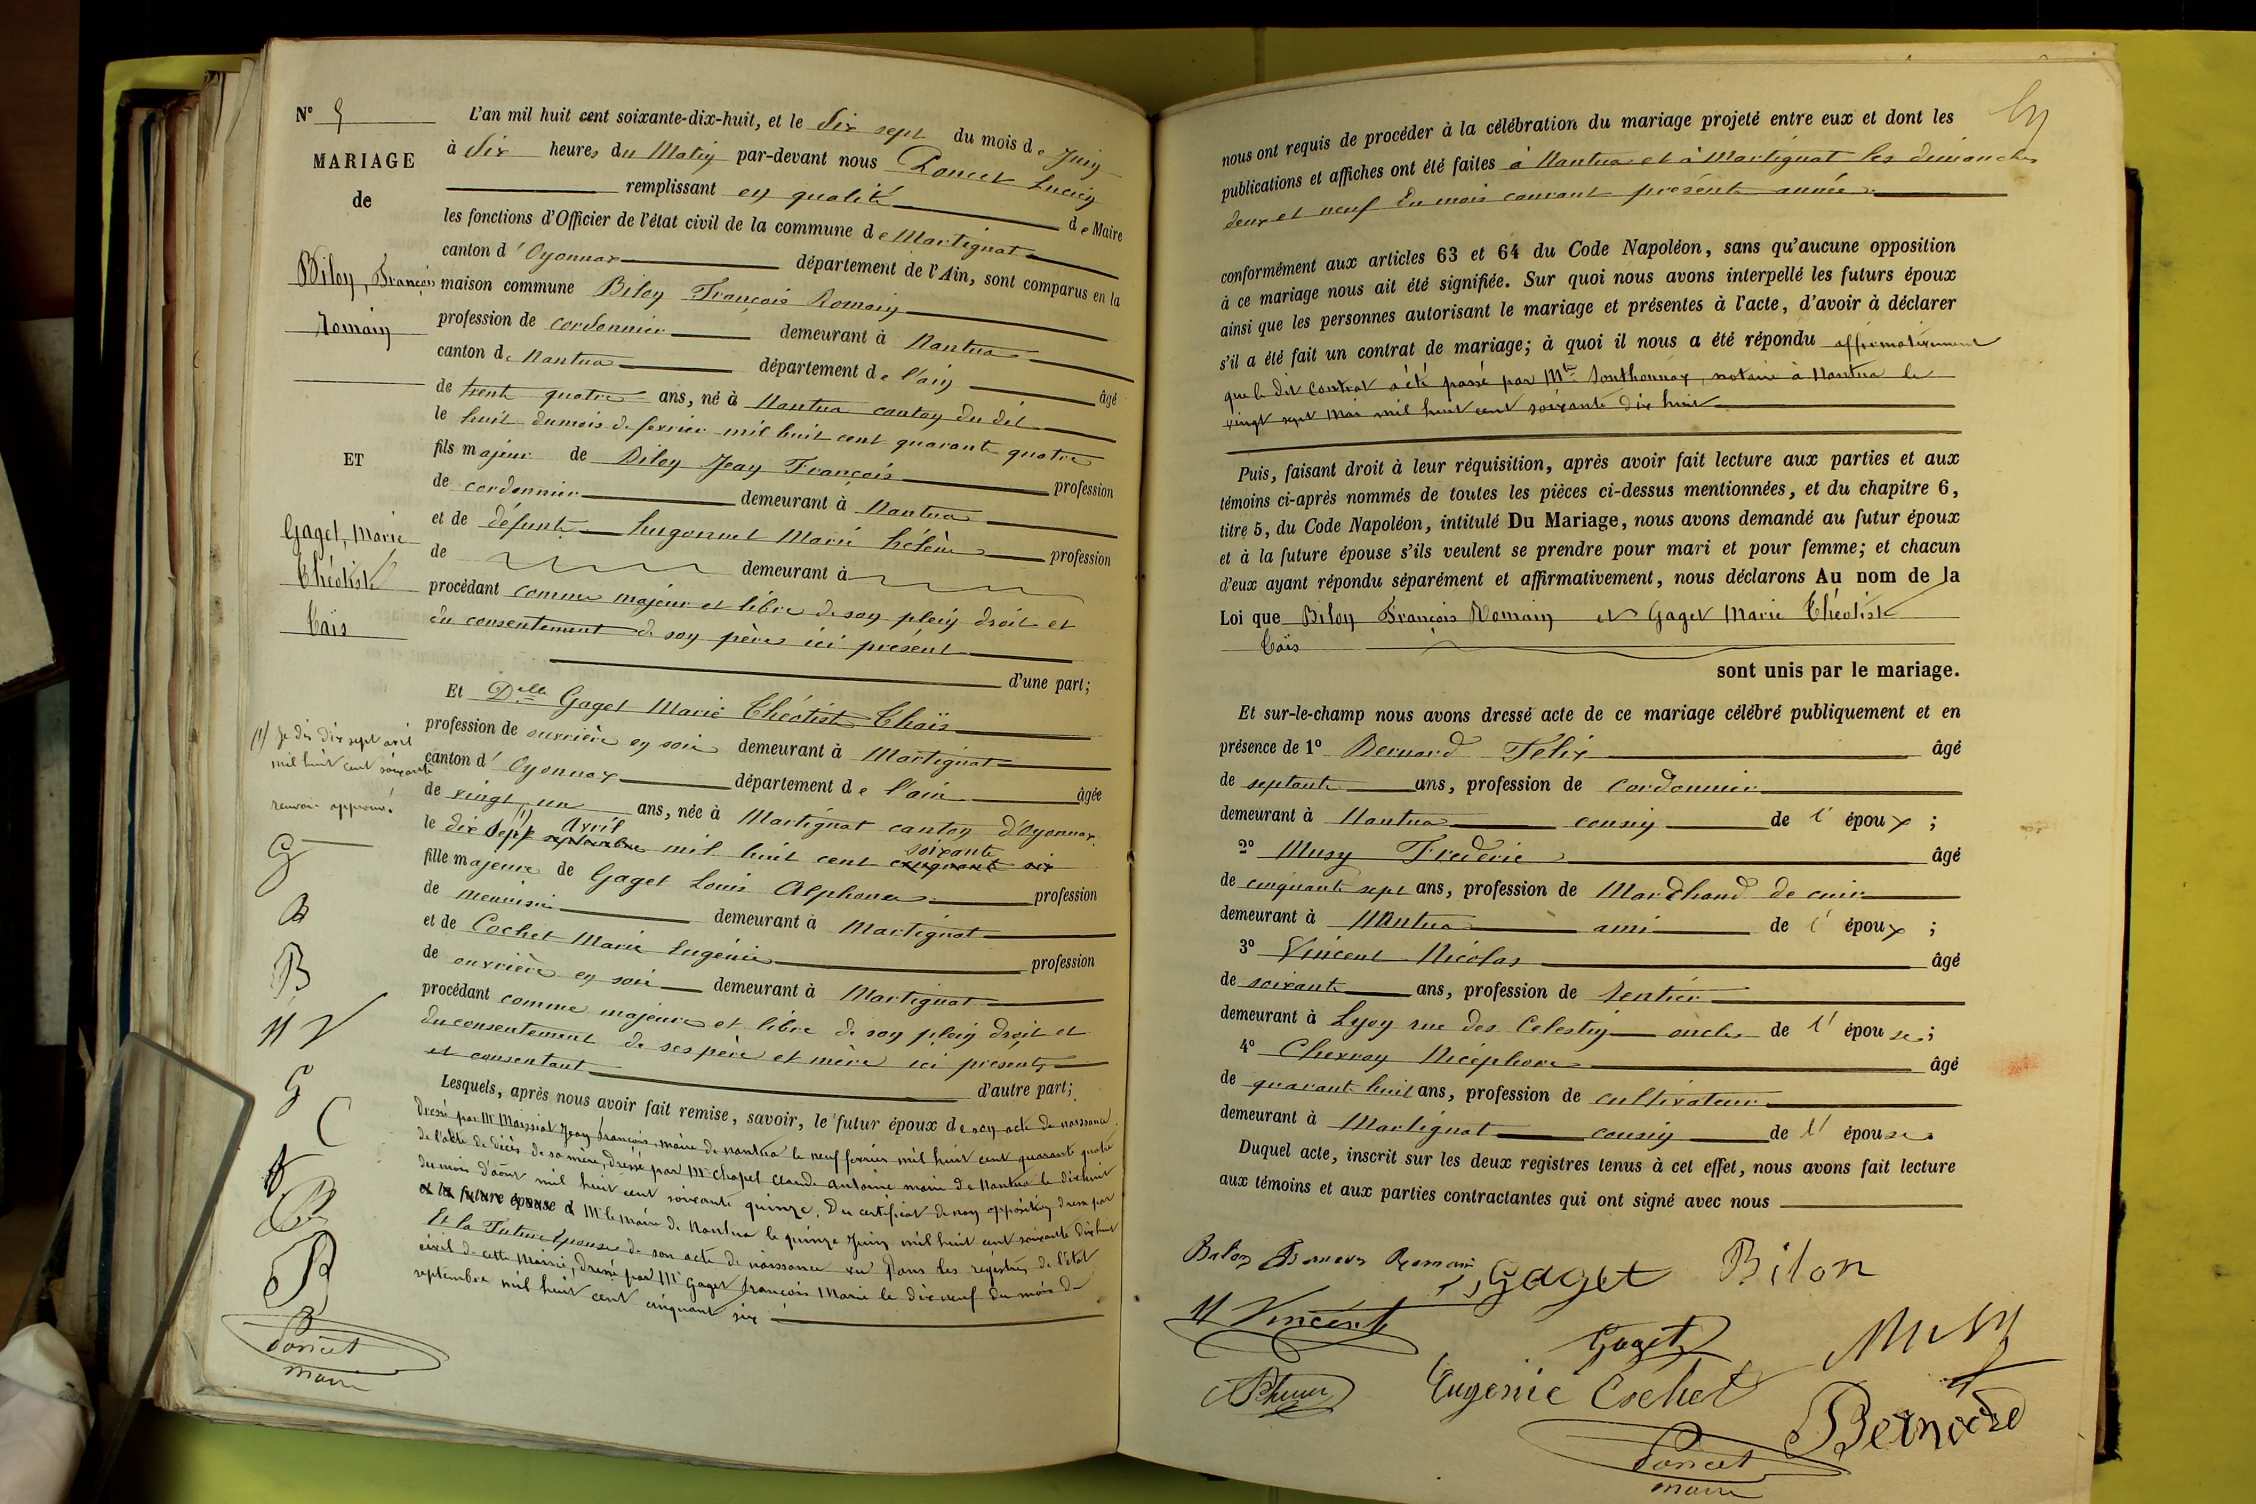 N° 5
MARIAGE
de
Bilon, François
Romain
ET
Gaget, Marie
Théotiste
Taïs
(1) Je dis dix sept avril
mil huit cent soixante
renvoi approuvé
G
B
B
N V
G
C
B
Poncet
maire
L'an mil huit cent soixante-dix-huit, et le dix sept du mois de Juin
à dix heures du Matin par-devant nous Poncet Lucien
remplissant en qualité de Maire
les fonctions d'Officier de l'état civil de la commune de Martignat
canton d'Oyonnax département de l'Ain, sont comparus en la
maison commune Bilon François Romain
profession de cordonnier demeurant à Nantua
canton de Nantua département de l'ain âgé
de trente quatre ans, né à Nantua canton du dit
le huit du mois de fevrier mil huit cent quarante quatre
fils majeur de Bilon Jean François profession
de cordonnier demeurant à Nantua
et de défunte hugonnet Marie helène profession
de demeurant à
procédant comme majeur et libre de son plein droit et
du consentement de son père ici présent
d'une part;
Et Delle Gaget Marie Théotiste Thaïs
profession de ouvrière en soie demeurant à Martignat
canton d'Oyonnax département de l'ain âgée
de vingt un ans, née à Martignat canton d'Oyonnax
le dix sept (1) avril septembre mil huit cent soixante cinquante six
fille majeure de Gaget Louis Alphonse profession
de menuisier demeurant à Martignat
et de Cochet Marie Eugénie profession
de ouvrière en soie demeurant à Martignat
procédant comme majeure et libre de son plein droit et
du consentement de ses père et mère ici présents
et consentant d'autre part;
Lesquels, après nous avoir fait remise, savoir, le futur époux de son acte de naissance
dressé par Mr Maissiat Jean françois, maire de nantua le neuf fevrier mil huit cent quarante quatre
de l'acte de décès de sa mère, dressé par Mr Chapel Claude Antoine maire de Nantua le dix huit
du mois d'août mil huit cent soixante quinze. Du certificat de non opposition dressé par
et la future épouse d Mr le maire de Nantua le quinze Juin mil huit cent soixante dix huit
Et la Future Epouse de son acte de naissance vu Dans les registres de l'état
civil de cette Mairie, dressé par Mr Gaget françois Marie le dix neuf du mois de
septembre mil huit cent cinquante six
nous ont requis de procéder à la célébration du mariage projeté entre eux et dont les
publications et affiches ont été faites à Nantua et à Martignat les dimanches
deux et neuf Du mois courant présente année
conformément aux articles 63 et 64 du Code Napoléon, sans qu'aucune opposition
à ce mariage nous ait été signifiée. Sur quoi nous avons interpellé les futurs époux
ainsi que les personnes autorisant le mariage et présentes à l'acte, d'avoir à déclarer
s'il a été fait un contrat de mariage; à quoi il nous a été répondu affirmativement
que le dit contrat a été passé par Mtre Southonnax, notaire à Nantua le
vingt sept Mai mil huit cent soixante dix huit
Puis, faisant droit à leur réquisition, après avoir fait lecture aux parties et aux
témoins ci-après nommés de toutes les pièces ci-dessus mentionnées, et du chapitre 6,
titre 5, du Code Napoléon, intitulé Du Mariage, nous avons demandé au futur époux
et à la future épouse s'ils veulent se prendre pour mari et pour femme; et chacun
d'eux ayant répondu séparément et affirmativement, nous déclarons Au nom de la
Loi que Bilon François Romain et Gaget Marie Théotiste
Taïs
sont unis par le mariage.
Et sur-le-champ nous avons dressé acte de ce mariage célébré publiquement et en
présence de 1° Bernard Felix âgé
de septante ans, profession de cordonnier
demeurant à Nantua cousin de l'époux;
2° Musy Frederic âgé
de cinquante sept ans, profession de Marchand de cuir
demeurant à Nantua ami de l'époux;
3° Vincent Nicolas âgé
de soixante ans, profession de rentier
demeurant à Lyon rue des Celestin oncle de l'épouse;
4° Chevron Nicéphore âgé
de quarante huit ans, profession de cultivateur
demeurant à Martignat cousin de l'épouse
Duquel acte, inscrit sur les deux registres tenus à cet effet, nous avons fait lecture
aux témoins et aux parties contractantes qui ont signé avec nous
Bilon François Romain
Gaget Bilon
N Vincent
Gaget Musy
Eugenie Cochet
Bernard
Poncet
maire